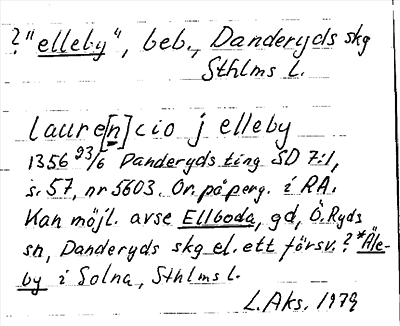 ? "elleby", beb., Danderyds skg
Sthlms l.
laure[n]cio j elleby
1356 23/6 Danderyds ting SD 7:1,
s. 57, nr 5603. Or. på perg. i RA.
Kan möjl. avse Ellboda, gd, Ö. Ryds
sn, Danderyds skg el. ett försv.? *Äle-
by i Solna, Sthlms l.
L. Aks. 1979